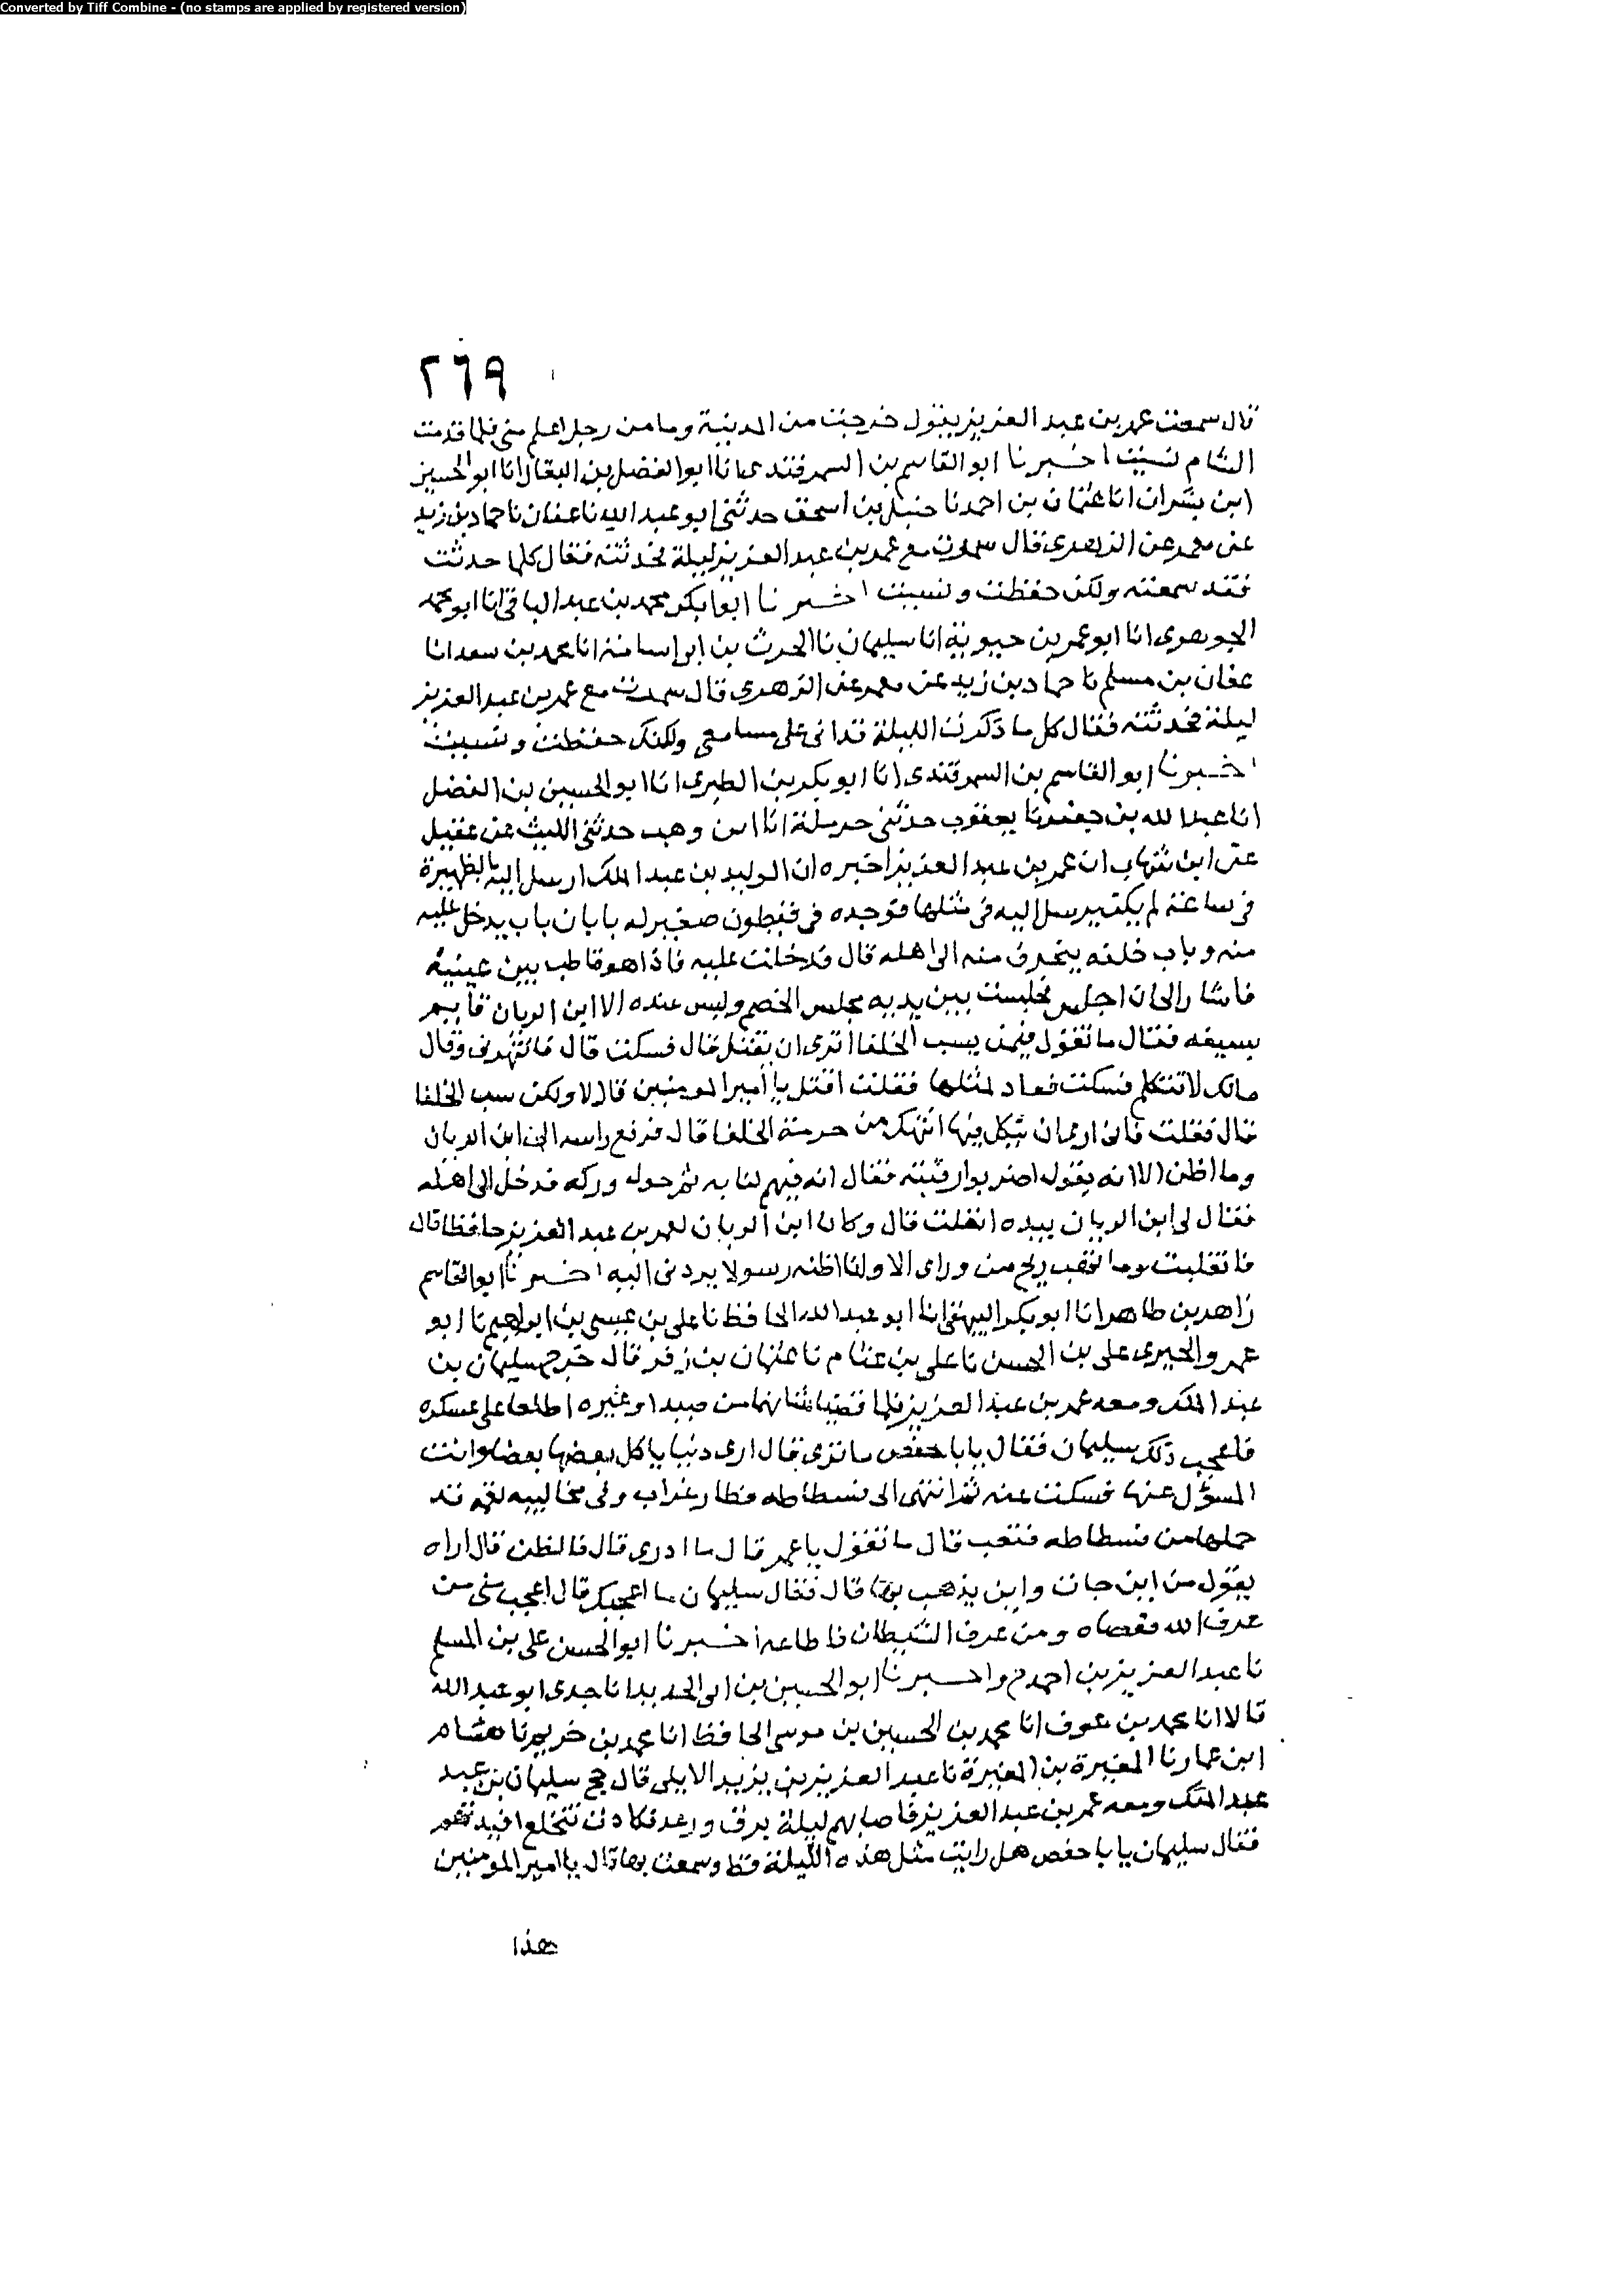 Converted by Tiff Combine - (no stamps are applied by registered version)
٢٦٩
قال سمعت عمر بن عبد العزيز يقول خرجت من المدينة وما من رجل اعلم مني فلما قدمت
الشام نسيت اخبرنا ابو القاسم بن السمرقندي انا ابو الفضل بن البقال انا ابو الحسين
ابن بشران انا عثمان بن احمد نا حنبل بن اسحق حدثني ابو عبد الله نا عفان نا حماد بن زيد
عن معمر عن الزهري قال سمرت مع عمر بن عبد العزيز ليلة فحدثته فقال كلما حدثت
فقد سمعته ولكن حفظت ونسيت اخبرنا ابو بكر محمد بن عبد الباقي انا ابو محمد
الجوهري انا ابو عمر بن حيوية انا سليمان نا الحرث بن ابي اسامة انا محمد بن سعد انا
عفان بن مسلم نا حماد بن زيد عن معمر عن الزهري قال سمرت مع عمر بن عبد العزيز
ليلة فحدثته فقال كل ما ذكرت الليلة قد اتى على مسامعي ولكنك حفظت ونسيت
اخبرنا ابو القاسم بن السمرقندي انا ابو بكر بن الطبري انا ابو الحسين بن الفضل
انا عبد الله بن جعفر نا يعقوب حدثني حرملة انا ابن وهب حدثني الليث عن عقيل
عن ابن شهاب ان عمر بن عبد العزيز اخبره ان الوليد بن عبد الملك ارسل اليه بالظهيرة
في ساعة لم يكن يرسل اليه في مثلها فوجده في قيطون صغير له بابان باب يدخل عليه
منه وباب خلفه ينحرف منه الى اهله قال فدخلت عليه فاذا هو قاطب بين عينيه
فاشار الي ان اجلس فجلست بين يديه مجلس الخصم وليس عنده الا ابن الريان قايم
بسيفه فقال ما تقول فيمن يسب الخلفا اترى ان يقتل قال فسكت قال فانتهرني وقال
مالك لا تتكلم فسكت فعاد لمثلها فقلت اقتل يا امير المومنين قال لا ولكن سب الخلفا
قال فقلت فاني ارى ان ينكل فيما انتهك من حرمة الخلفا قال فرفع راسه الى ابن الريان
وما اظن الا انه يقول اضربوا رقبته فقال انه فيهم لتايه ثم حول وركه فدخل الى اهله
فقال لي ابن الريان بيده انقلت قال وكان ابن الريان لعمر بن عبد العزيز حافظا قال
فانقلبت وما تهب ريح من وراى الا وانا اظنه رسولا يردني اليه اخبرنا ابو القاسم
زاهر بن طاهر انا ابو بكر البيهقي انا ابو عبد الله الحافظ نا علي بن عيسى بن ابراهيم نا ابو
عمرو الحيري علي بن الحسن نا علي بن عثام نا عثمان بن زفر قال خرج سليمان بن
عبد الملك ومعه عمر بن عبد العزيز فلما اطلعا على عسكره
فاعجب ذلك سليمان فقال يابا حفص ما ترى قال ارى دنيا ياكل بعضها بعضا وانت
المسؤل عنها فسكت عنه ثم انتهى الى فسطاطه فطار غراب وفي مخاليبه لقمة قد
حملها من فسطاطه فنعب قال ما تقول يا عمر قال ما ادري قال فالظن قال اراه
يقول من اين جات واين يذهب بها قال فقال سليمان ما اعجبك قال اعجب مني من
عرف الله فعصاه ومن عرف الشيطان فاطاعه اخبرنا ابو الحسن علي بن المسلم
نا عبد العزيز بن احمد ح واخبرنا ابو الحسين بن ابي الحديد انا جدي ابو عبد الله
قالا انا محمد بن عوف انا محمد بن الحسين بن موسى الحافظ انا محمد بن خريم نا هشام
ابن عمار نا المغيرة بن المغيرة نا عبد العزيز بن يزيد الايلي قال حج سليمان بن عبد
عبد الملك ومعه عمر بن عبد العزيز فاصابهم ليلة برق ورعد فكادت تنخلع افيدتهم
فقال سليمان يا با حفص هل رايت مثل هذه الليلة قط وسمعت بها قال يا امير المومنين
هذا